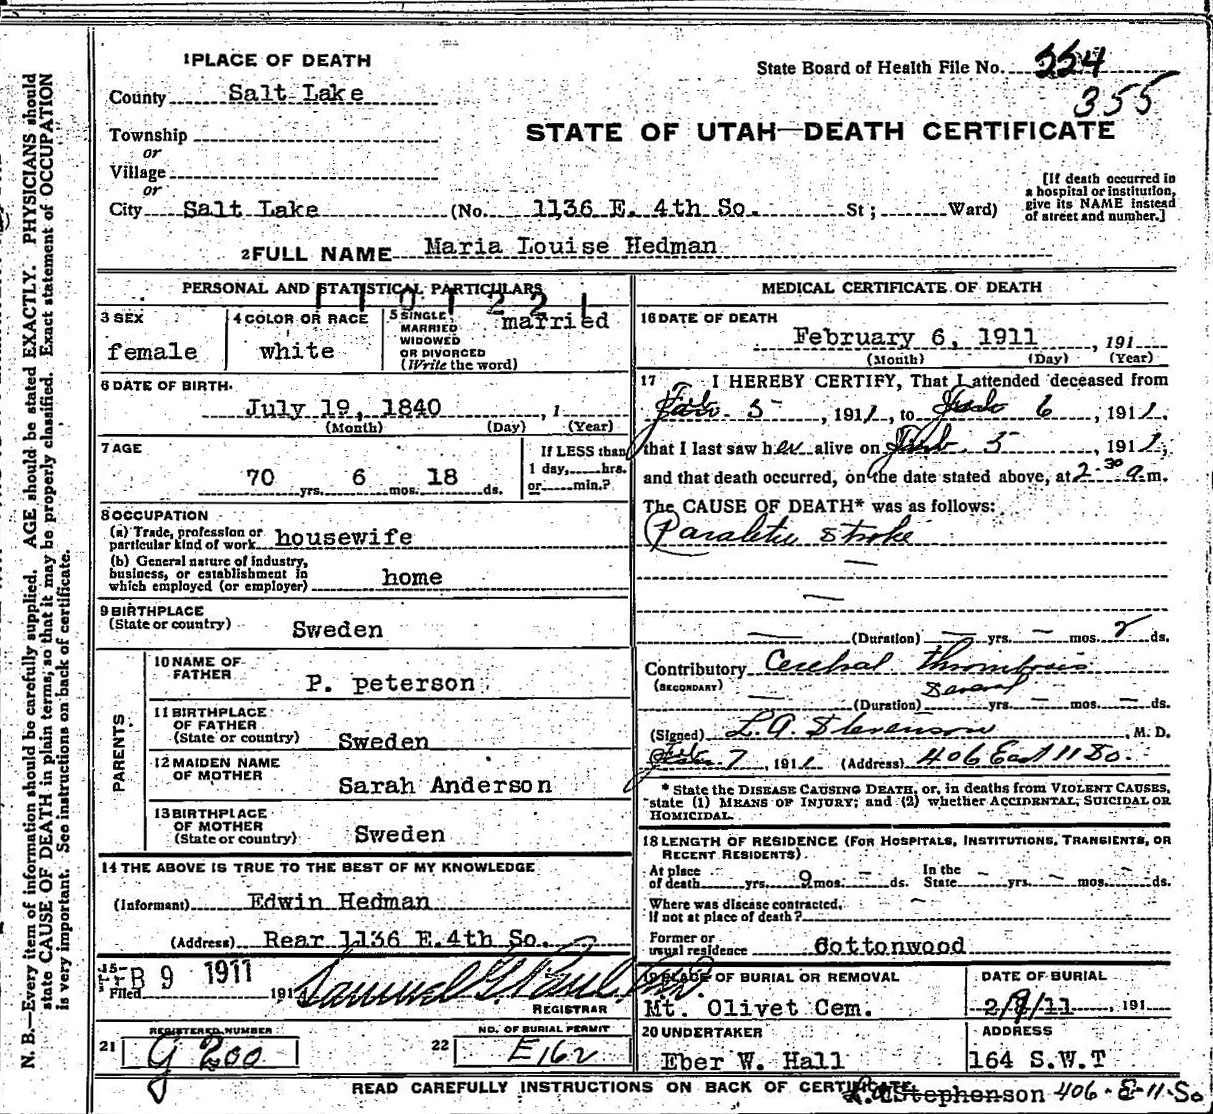 1 PLACE OF DEATH
State Board of Health File No. 354
355
County Salt Lake
STATE OF UTAH—DEATH CERTIFICATE
Township
or
Village
or
[If death occurred in
a hospital or institution,
give its NAME instead
of street and number.]
City Salt Lake (No. 1136 E. 4th So. St; Ward)
2 FULL NAME Maria Louise Hedman
PERSONAL AND STATISTICAL PARTICULARS
3 SEX
female
4 COLOR OR RACE
white
5 SINGLE,
MARRIED
WIDOWED
OR DIVORCED
(Write the word)
married
6 DATE OF BIRTH.
July 19, 1840 , 1
(Month) (Day) (Year)
7 AGE
70 yrs. 6 mos. 18 ds.
If LESS than
1 day, hrs.
or min.?
8 OCCUPATION
(a) Trade, profession or
particular kind of work housewife
(b) General nature of industry,
business, or establishment in
which employed (or employer) home
9 BIRTHPLACE
(State or country) Sweden
PARENTS.
10 NAME OF
FATHER P. peterson
11 BIRTHPLACE
OF FATHER
(State or country) Sweden
12 MAIDEN NAME
OF MOTHER Sarah Anderson
13 BIRTHPLACE
OF MOTHER
(State or country) Sweden
14 THE ABOVE IS TRUE TO THE BEST OF MY KNOWLEDGE
(Informant) Edwin Hedman
(Address) Rear 1136 E.4th So.
15 FEB 9 1911
Filed 191
REGISTRAR
REGISTERED NUMBER
21 G 200
NO. OF BURIAL PERMIT
22 E162
MEDICAL CERTIFICATE OF DEATH
16 DATE OF DEATH
February 6, 1911 , 191
(Month) (Day) (Year)
17 I HEREBY CERTIFY, That I attended deceased from
Feb 5 , 1911, to Feb 6 , 1911,
that I last saw her alive on Feb. 5 , 1911,
and that death occurred, on the date stated above, at 2-30 a.m.
The CAUSE OF DEATH* was as follows:
Paraletic Stroke
(Duration) yrs. mos. 2 ds.
Contributory Cerebral Thrombosis
(SECONDARY) Several
(Duration) yrs. mos. ds.
(Signed) L. A. Stevenson , M. D.
Feb 7 , 1911 (Address) 406 East 11 So.
* State the DISEASE CAUSING DEATH, or, in deaths from VIOLENT CAUSES,
state (1) MEANS OF INJURY; and (2) whether ACCIDENTAL, SUICIDAL OR
HOMICIDAL.
18 LENGTH OF RESIDENCE (FOR HOSPITALS, INSTITUTIONS, TRANSIENTS, OR
RECENT RESIDENTS)
At place
of death yrs. 9 mos. ds. In the
State yrs. mos. ds.
Where was disease contracted,
if not at place of death?
Former or
usual residence Cottonwood
19 PLACE OF BURIAL OR REMOVAL
Mt. Olivet Cem.
DATE OF BURIAL
2/9/11 , 191
20 UNDERTAKER
Eber W. Hall
ADDRESS
164 S.W.T
READ CAREFULLY INSTRUCTIONS ON BACK OF CERTIFICATE.
Stephenson 406-E-11-So
N. B.—Every item of information should be carefully supplied. AGE should be stated EXACTLY. PHYSICIANS should
state CAUSE OF DEATH in plain terms, so that it may be properly classified. Exact statement of OCCUPATION
is very important. See instructions on back of certificate.